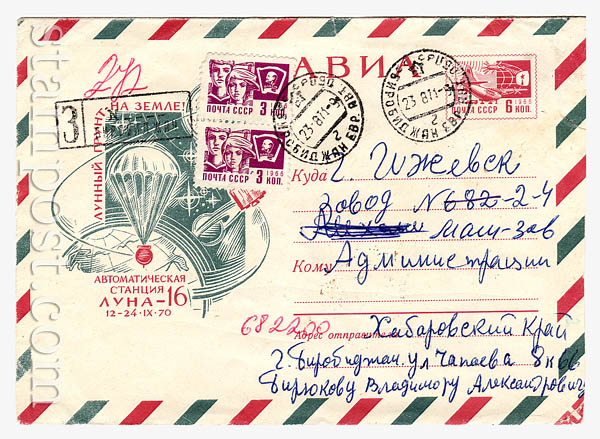 АВИА
ПОЧТА СССР 1966 3 КОП.
ПОЧТА СССР 1966 3 КОП.
ПОЧТА СССР 1966 6 КОП.
БИРОБИДЖАН ЕВР
23 8 71
БИРОБИДЖАН ЕВР
23 8 71
З
ЛУННЫЙ ГРУНТ НА ЗЕМЛЕ!
АВТОМАТИЧЕСКАЯ
СТАНЦИЯ
ЛУНА-16
12-24·IX·70
Куда г. Ижевск
завод N 682-2-4
маш-зав
Кому Администрации
682200
Адрес отправителя Хабаровский Край
г. Биробиджан. ул Чапаева 8 к 66
Бирюкову Владимиру Александровичу
stampost.com